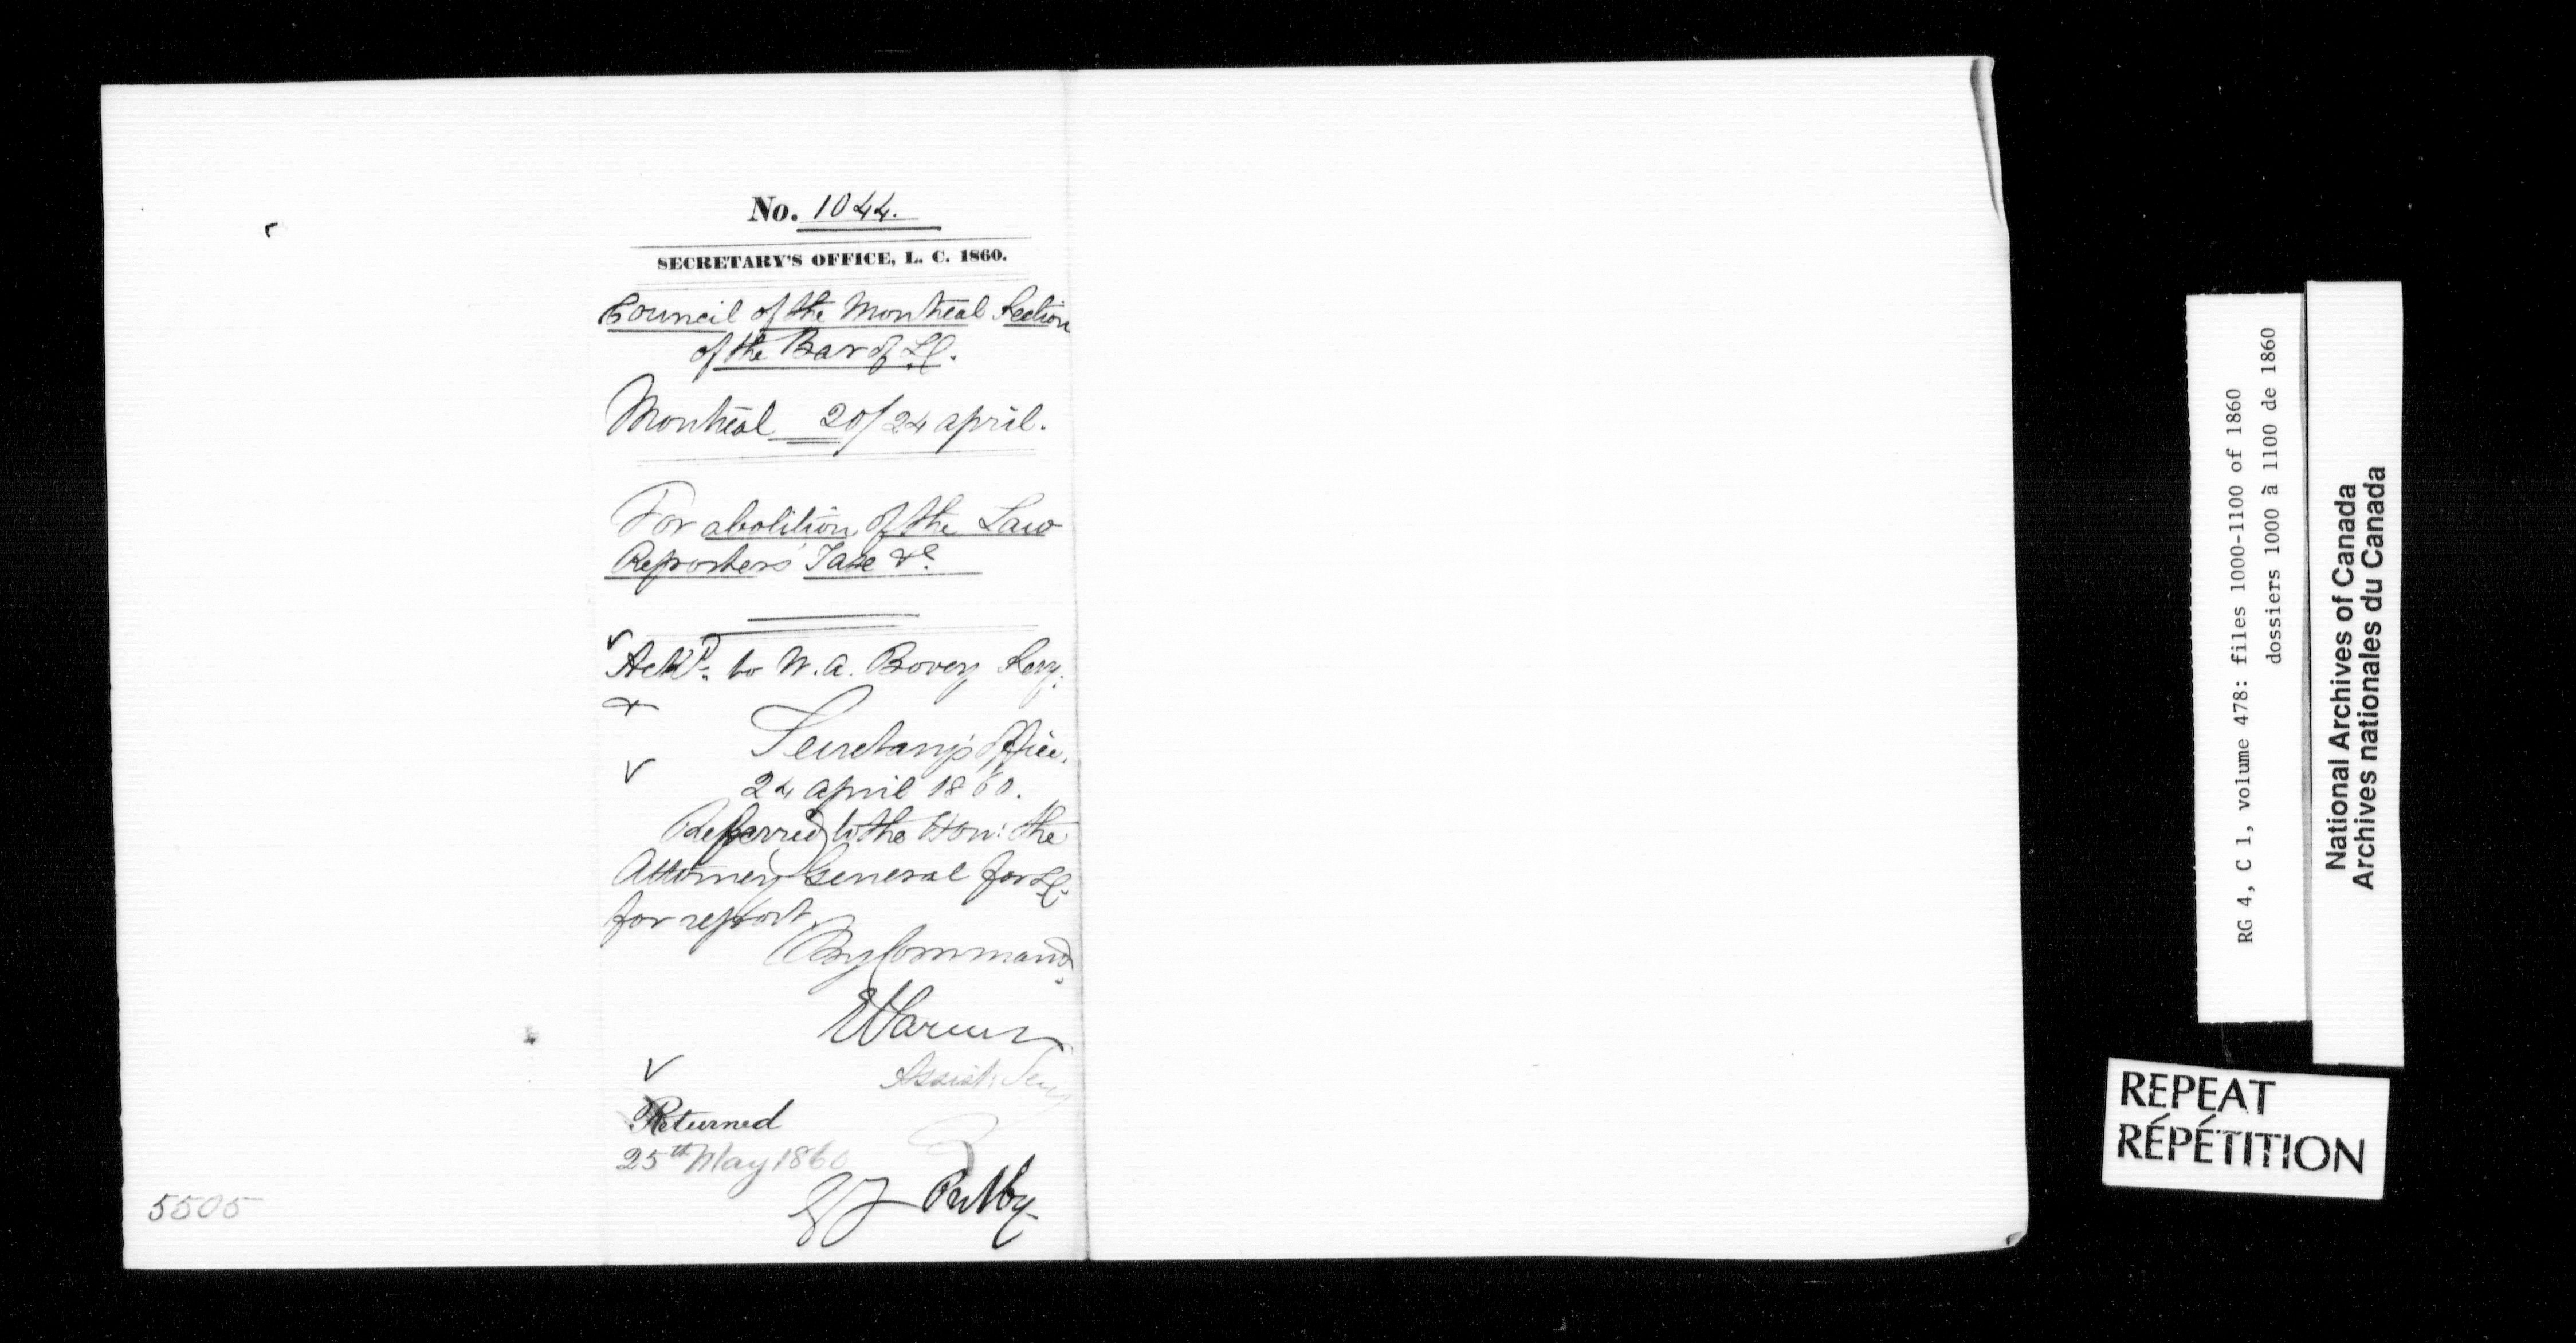 No. 1044.
SECRETARY'S OFFICE, L. C. 1860.
Council of the Montreal Section
of the Bar of L.C.
Montreal 20/24 april.
For abolition of the Law
Reporters' Taxe &c.
Ackd. to W. A. Bovey Secy.
Secretary's office,
24 april 1860.
Referred to the Hon: the
Attorney General for L.C.
for report.
By Command.
Assist: Secy
Returned
25th May 1860
5505
RG 4, C 1, volume 478: files 1000-1100 of 1860
dossiers 1000 à 1100 de 1860
National Archives of Canada
Archives nationales du Canada
REPEAT
RÉPÉTITION